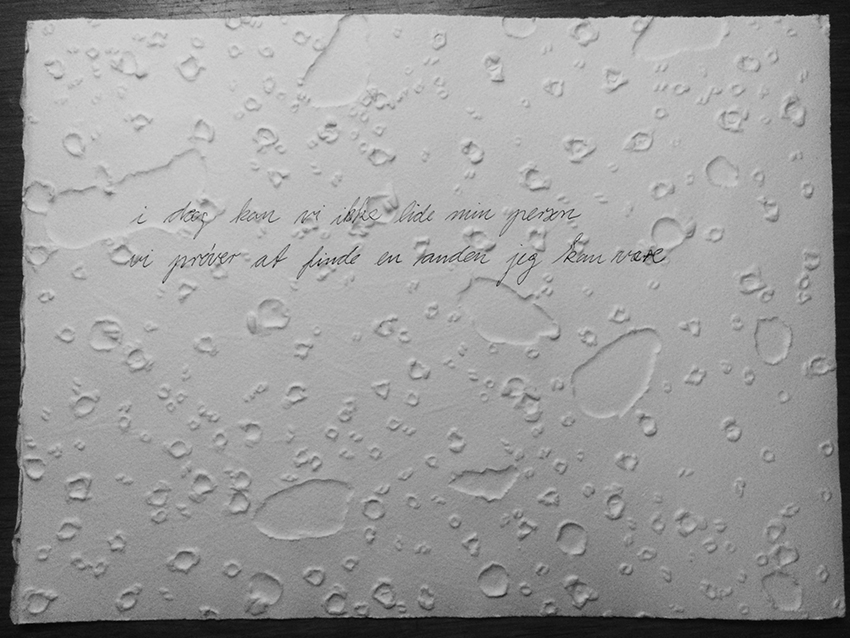 i dag kan vi ikke lide min person
vi prøver at finde en anden jeg kan være